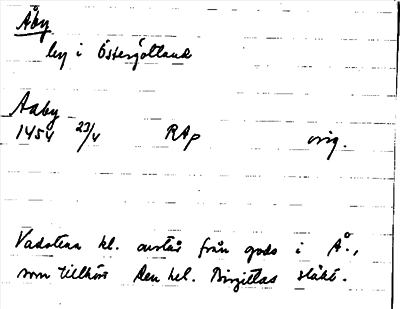 Åby
by i Östergötland
Aaby
1454 23/4 RAp orig.
Vadstena kl. avstår från gods i Å.,
som tillhör den hel. Birgittas släkt.